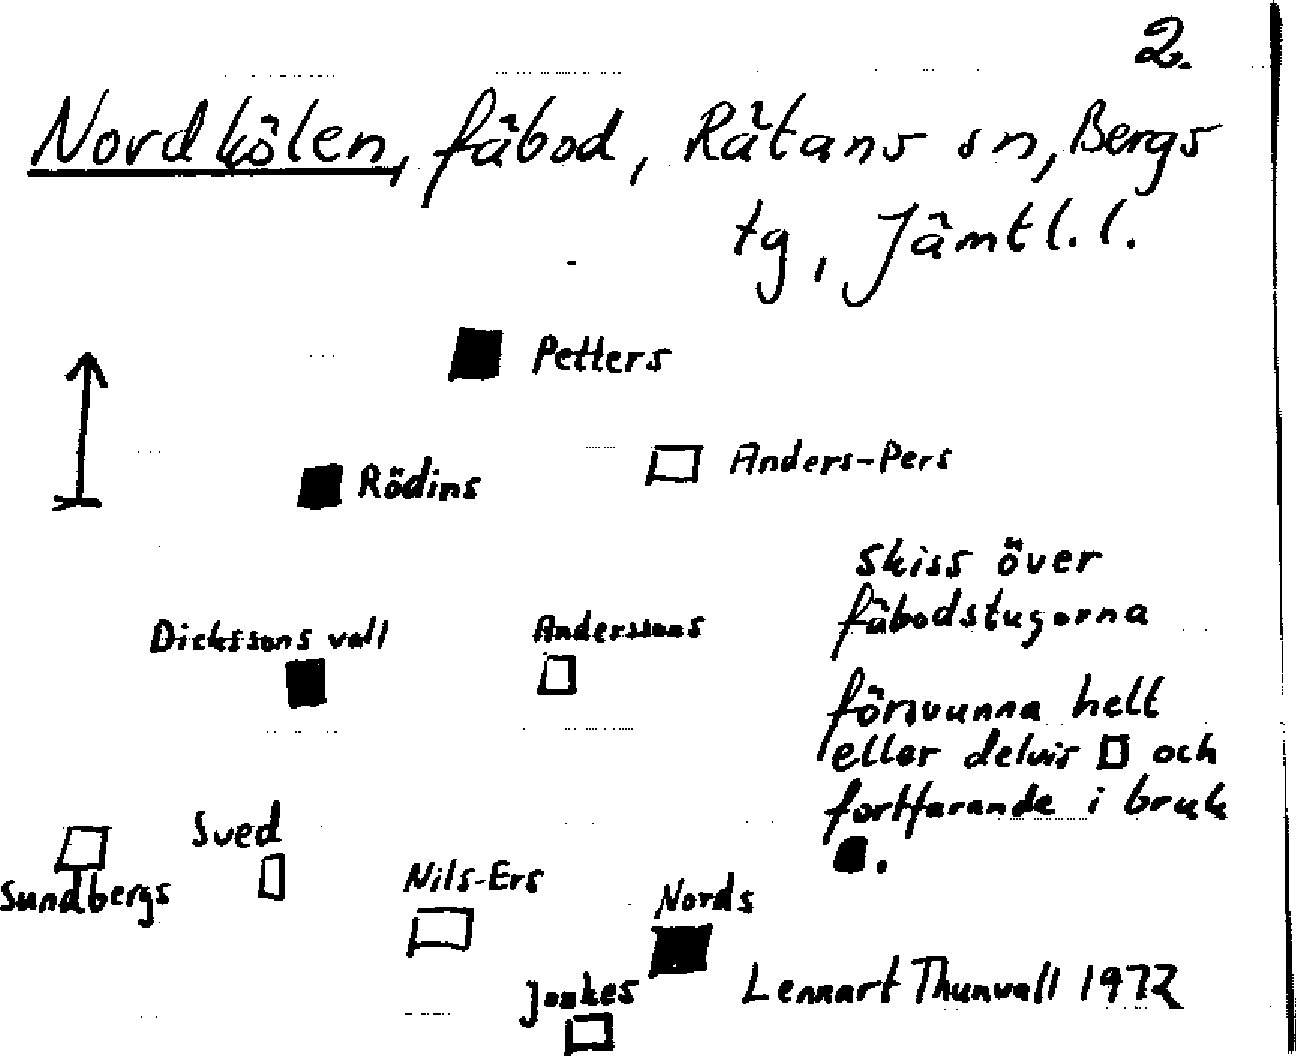 2.
Nordkölen, fäbod, Rätans sn, Bergs
tg, Jämtl. l.
Petters
Anders-Pers
Rödins
Skiss över
fäbodstugorna
Dickssons vall
Anderssons
försvunna helt
eller delvis och
fortfarande i bruk
.
Sved
Sundbergs
Nils-Ers
Nords
Jonkes
Lennart Thunvall 1972